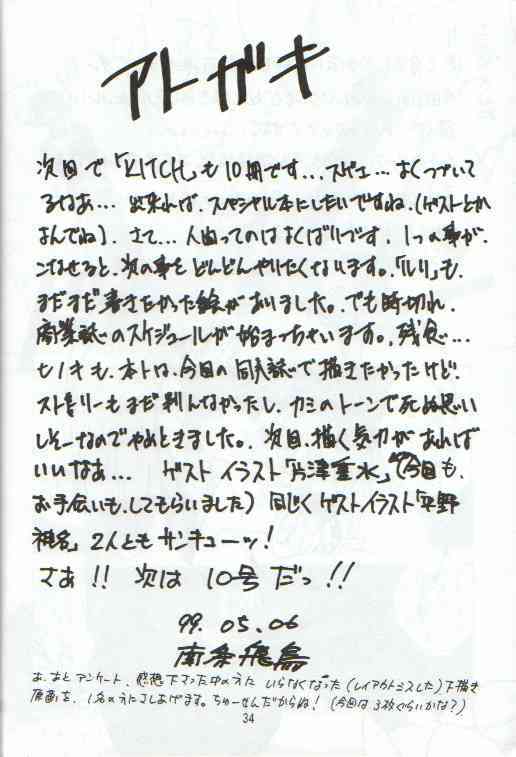 アトガキ
次回で「KITCH」も10冊です…スゲェ…よくつづいて
るなぁ…出来れば、スペシャル本にしたいですね。(ゲストとか
よんでね)。さて…人間ってのはよくばりです。1つの事が
こなせると、次の事をどんどんやりたくなります。「ルリ」も、
まだまだ書きたかった絵がありました。でも時切れ、
商業誌のスケジュールが始まっちゃいます。残念…
も、本トは、今回の同人誌で描きたかったけど!
ストーリーもまだ判んなかったし、カミのトーンで死ぬ思い
しそーなのでやめときました。次回、描く気力があれば
いいなぁ… ゲストイラスト「片津垂水」(今回も、
お手伝いも、してもらいました)同じくゲストイラスト「平野
」2人ともサンキューッ!
さぁ!!次は10号だっ!!
99.05.06
南条飛鳥
あ、あとアンケート、感想下さった中の方に いらなくなった(レイアウトミスした)下描き
原画を、1名の方にさしあげます。ちゅーせんだからね!(今回は3枚ぐらいかな?)
34